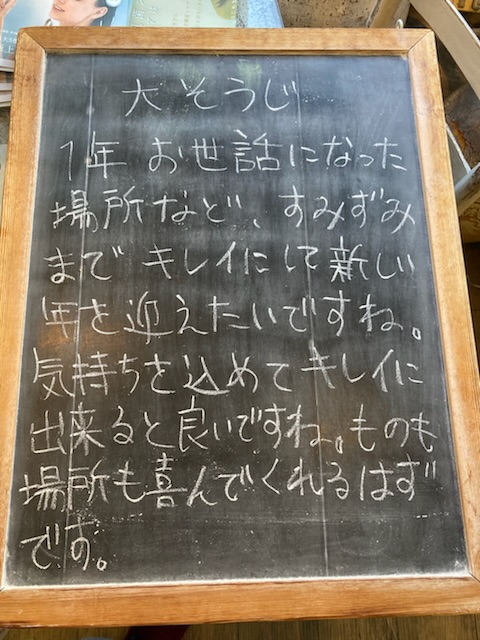 大そうじ
1年 お世話になった
場所など、すみずみ
まで キレイにして新しい
年を迎えたいですね。
気持ちを込めてキレイに
出来ると良いですね。ものも
場所も喜んでくれるはず
です。